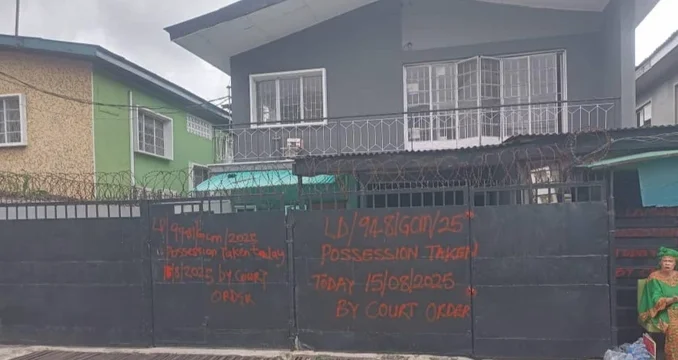 LD/9481GCM/2025
"Possession Taken today
15/8/2025 by COURT
ORDER
LD/9481GCM/25"
POSSESSION TAKEN
TODAY 15/08/2025
BY COURT ORDER